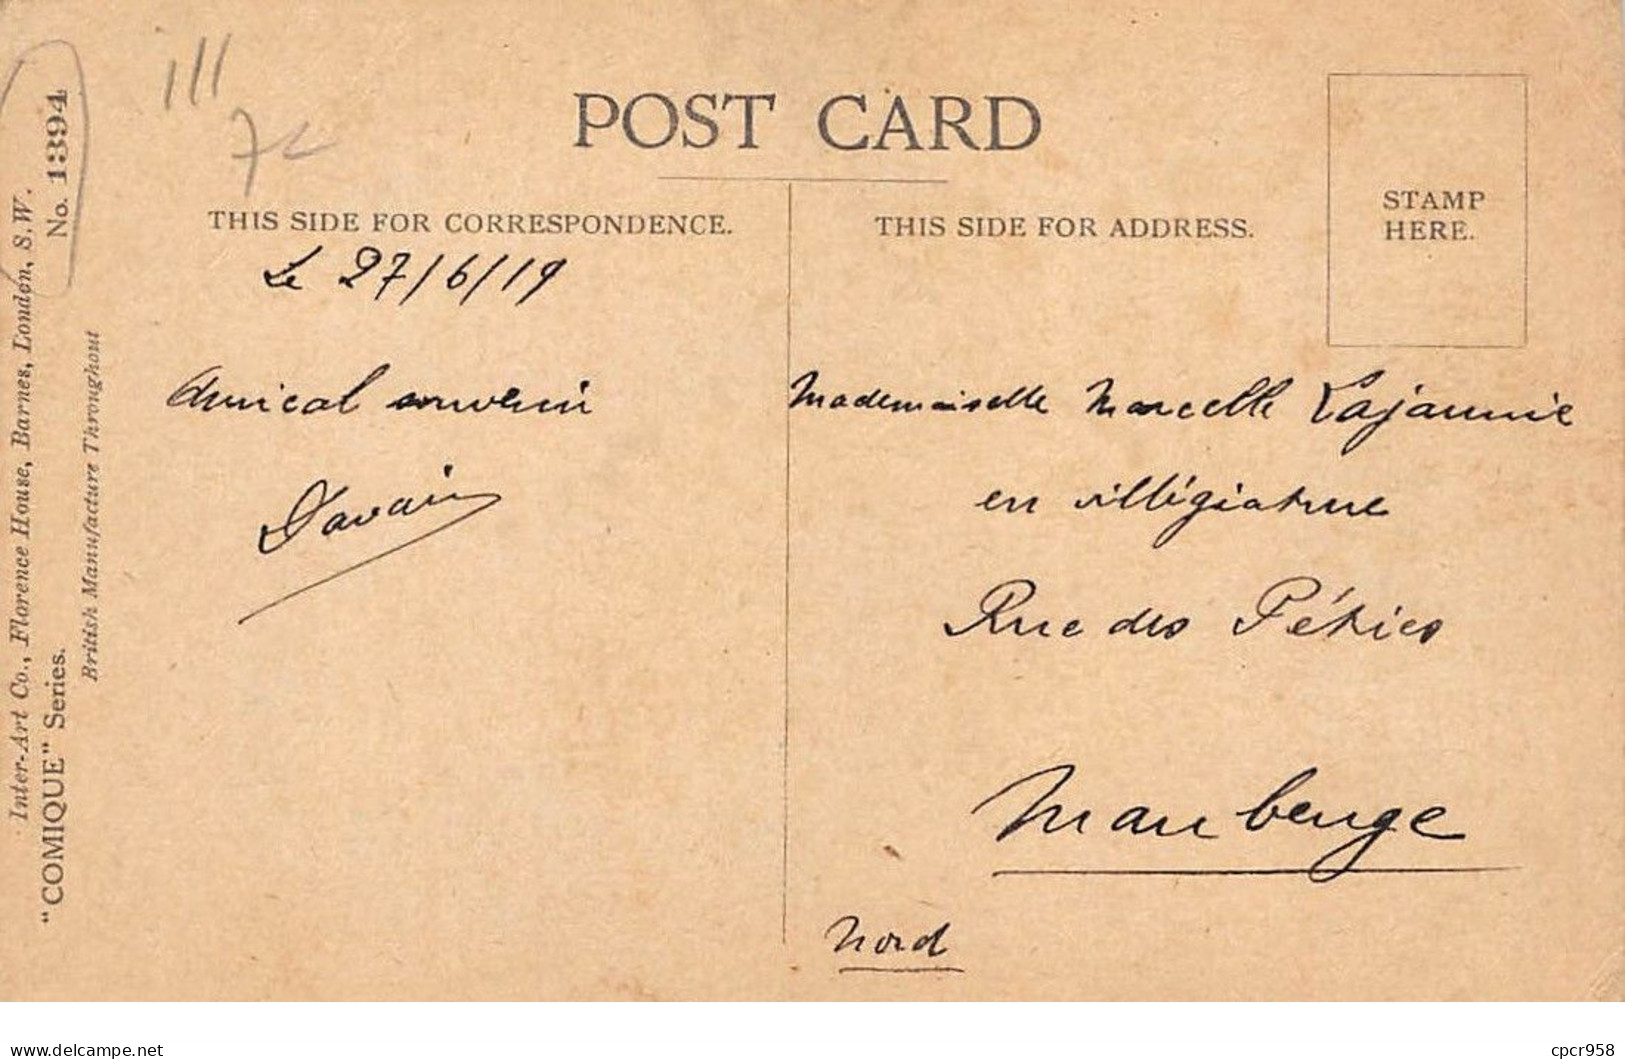 POST CARD
THIS SIDE FOR CORRESPONDENCE.
THIS SIDE FOR ADDRESS.
STAMP
HERE.
Le 27/6/19
Amical souvenir
Davain
Mademoiselle Marcelle Lajaunie
en villégiature
Rue des
Maubeuge
Nord
Inter-Art Co., Florence House, Barnes, London, S.W.
"COMIQUE" Series. No. 1394
British Manufacture Throughout
III
7c
delcampe.net
cpcr958